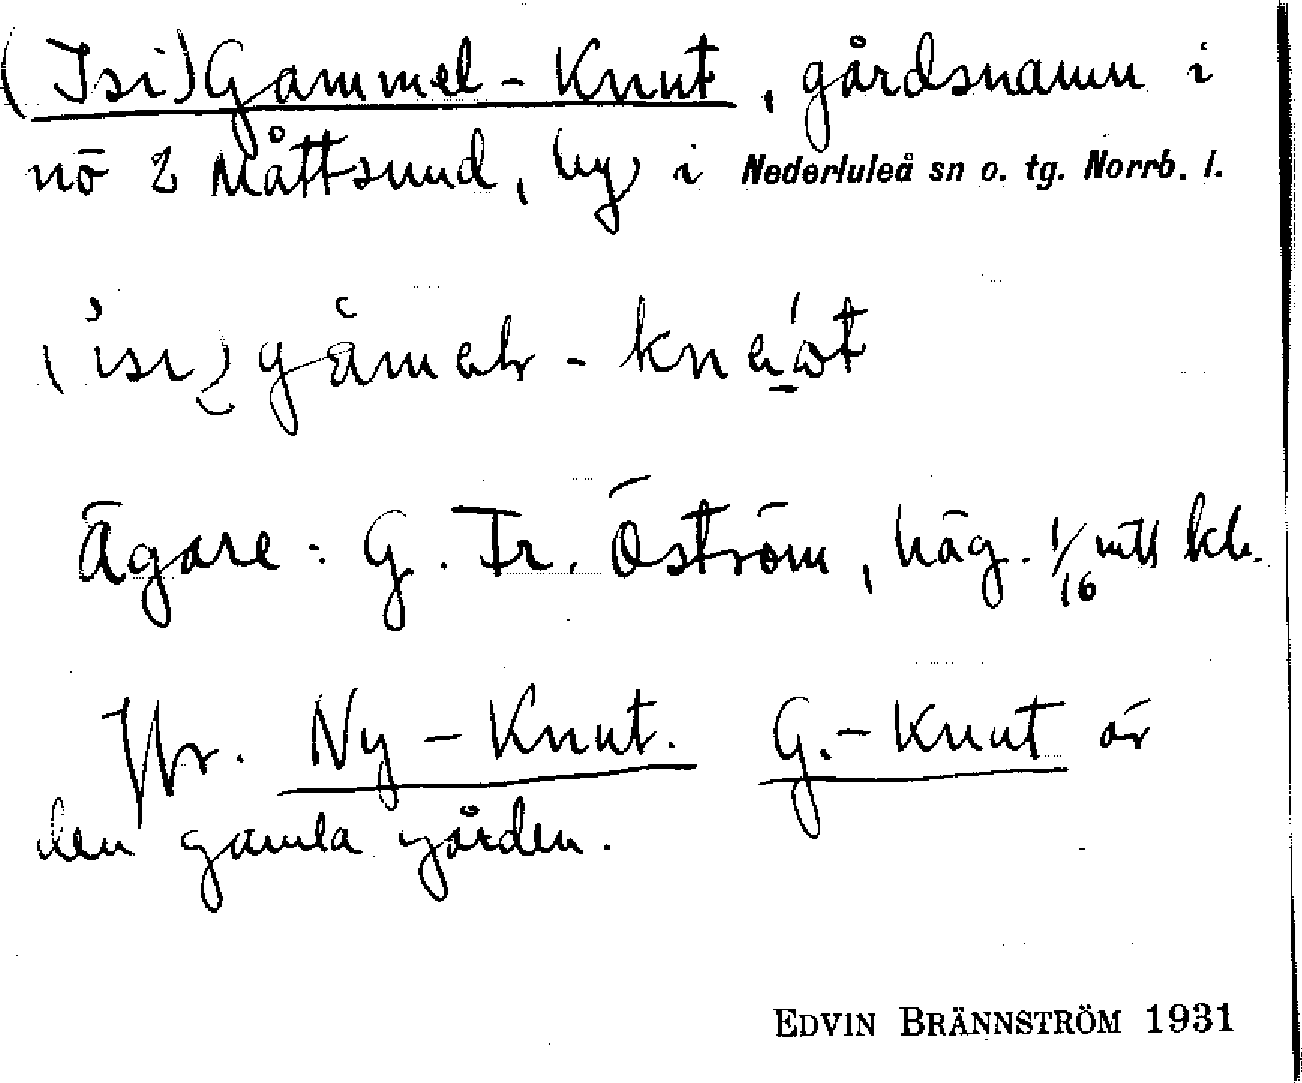 (Isi)Gammel-Knut, gårdsnamn i
nö 2 Måttsund, by i Nederluleå sn o. tg. Norrb. l.
Ägare: G. Fr. Öström, häg. 1/16 mtl
Jfr. Ny-Knut. G.-Knut är
den gamla gården.
EDVIN BRÄNNSTRÖM 1931